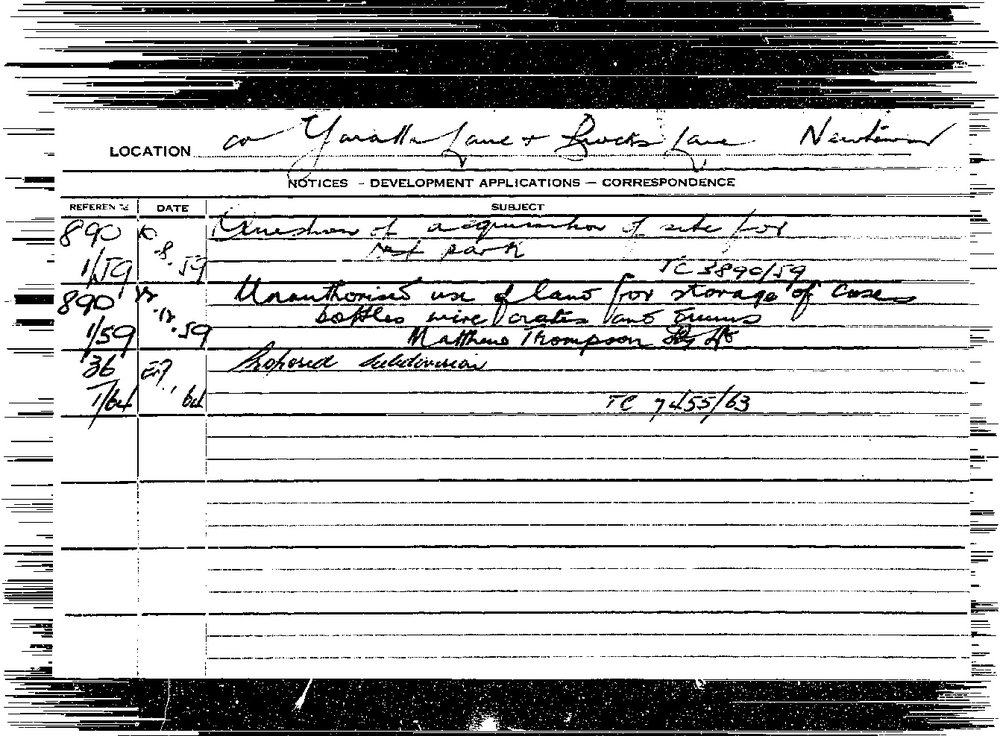 LOCATION co Yaralla Lane + Brocks Lane Newtown
NOTICES - DEVELOPMENT APPLICATIONS - CORRESPONDENCE
REFERENCE DATE SUBJECT
890 10 Question of acquisition of site for
-8.59 rest park
1/59 TC 3890/59
890 Unauthorised use of land for storage of cases
.12.59 bottles wire crates and drums
1/59 Matthews Thompson Pty Ltd
36 Proposed Subdivision
1/64 64 TC 7455/63